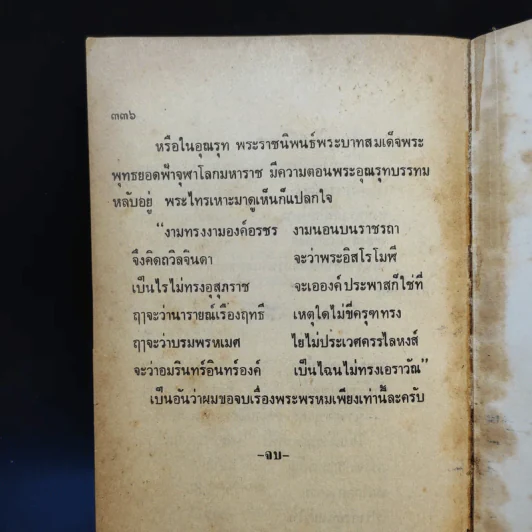 ๓๓๖
หรือในอุณรุท พระราชนิพนธ์พระบาทสมเด็จพระ
พุทธยอดฟ้าจุฬาโลกมหาราช มีความตอนพระอุณรุทบรรทม
หลับอยู่ พระไทรเหาะมาดูเห็นก็แปลกใจ
"งามทรงงามองค์อรชร งามนอนบนราชรถา
จึงคิดถวิลจินดา จะว่าพระอิสโรโมฬี
เป็นไรไม่ทรงอุสุภราช จะเอองค์ประพาสก็ใช่ที่
ฤๅจะว่านารายณ์เรืองฤทธี เหตุใดไม่ขี่ครุฑทรง
ฤๅจะว่าบรมพรหเมศ ไยไม่ประเวศครรไลหงส์
จะว่าอมรินทร์อินทร์องค์ เป็นไฉนไม่ทรงเอราวัณ"
เป็นอันว่าผมขอจบเรื่องพระพรหมเพียงเท่านี้ละครับ
-จบ-